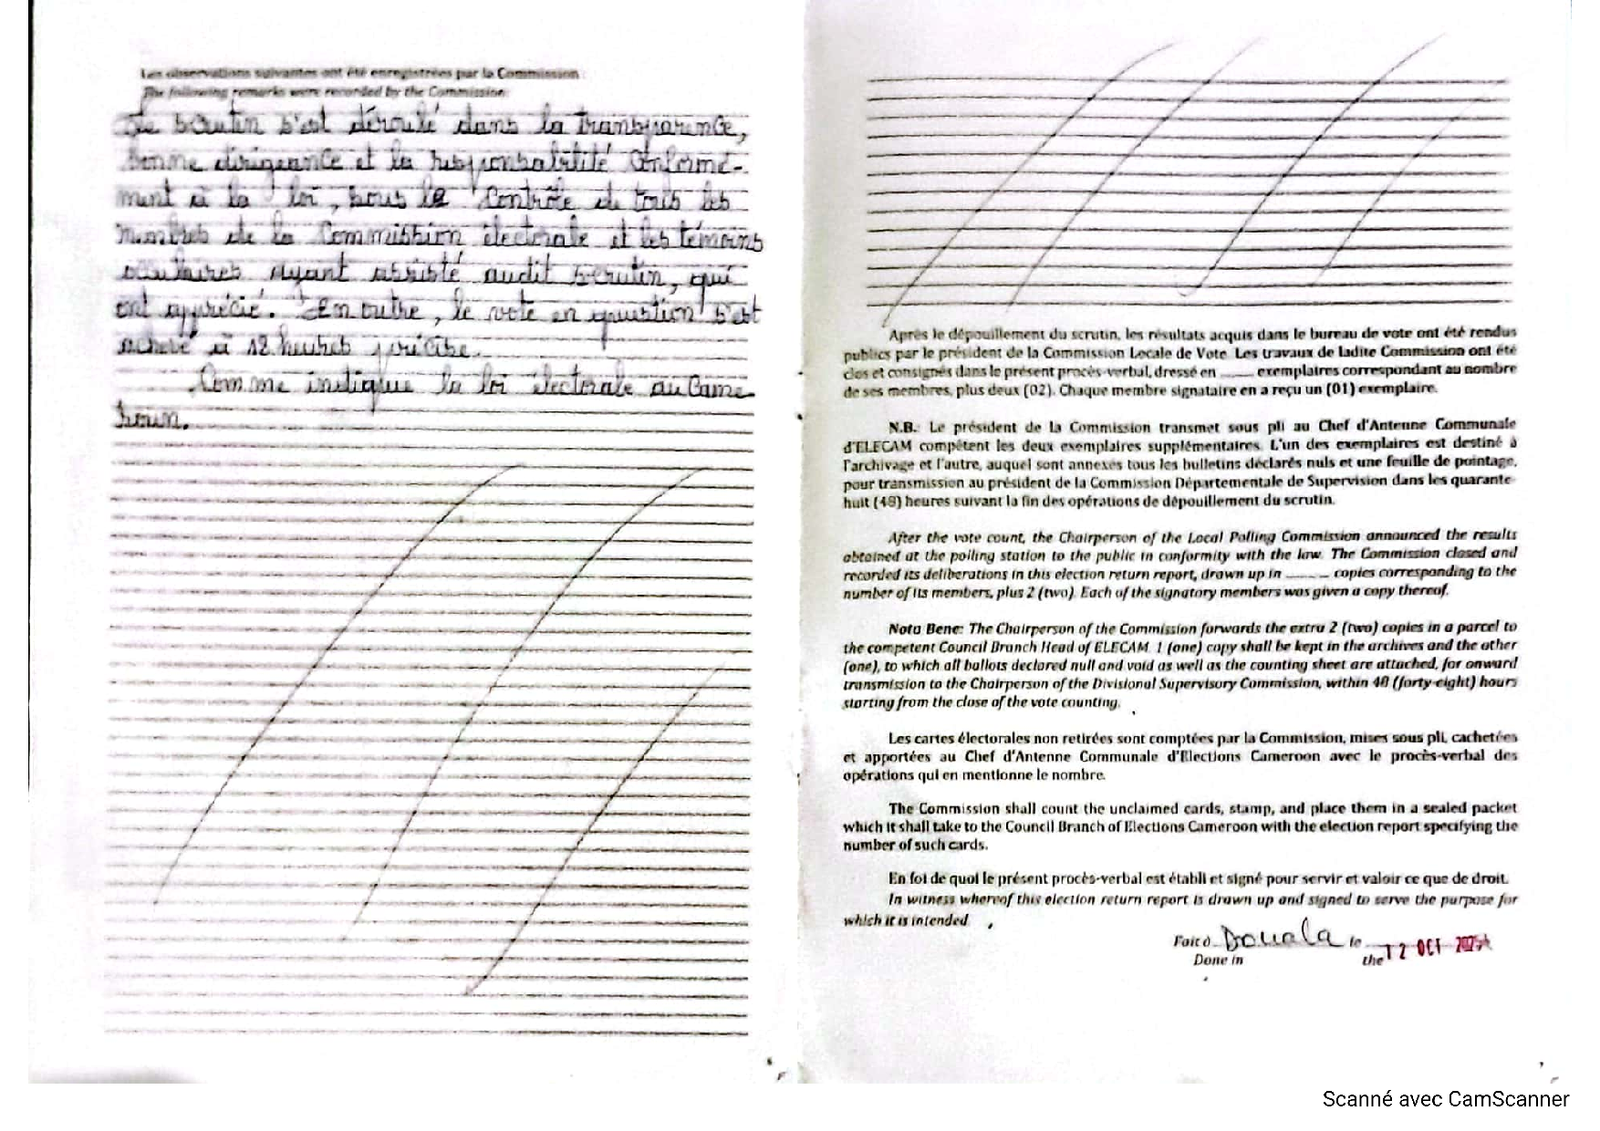 Les observations suivantes ont été enregistrées par la Commission :
The following remarks were recorded by the Commission:
Le scrutin s'est déroulé dans la transparence,
bonne dirigeance et la responsabilité Conformé-
ment à la loi, sous le Contrôle de tous les
membres de la Commission électorale et les témoins
oculaires ayant assisté audit scrutin, qui
ont apprécié. En outre, le vote en question s'est
achevé à 18 heures précise.
Comme instique la loi électorale au Came-
roun.
Après le dépouillement du scrutin, les résultats acquis dans le bureau de vote ont été rendus
publics par le président de la Commission Locale de Vote. Les travaux de ladite Commission ont été
clos et consignés dans le présent procès-verbal, dressé en ........ exemplaires correspondant au nombre
de ses membres, plus deux (02). Chaque membre signataire en a reçu un (01) exemplaire.
N.B.: Le président de la Commission transmet sous pli au Chef d'Antenne Communale
d'ELECAM compétent les deux exemplaires supplémentaires. L'un des exemplaires est destiné à
l'archivage et l'autre, auquel sont annexés tous les bulletins déclarés nuls et une feuille de pointage,
pour transmission au président de la Commission Départementale de Supervision dans les quarante-
huit (48) heures suivant la fin des opérations de dépouillement du scrutin.
After the vote count, the Chairperson of the Local Polling Commission announced the results
obtained at the polling station to the public in conformity with the law. The Commission closed and
recorded its deliberations in this election return report, drawn up in ........ copies corresponding to the
number of its members, plus 2 (two). Each of the signatory members was given a copy thereof.
Nota Bene: The Chairperson of the Commission forwards the extra 2 (two) copies in a parcel to
the competent Council Branch Head of ELECAM. 1 (one) copy shall be kept in the archives and the other
(one), to which all ballots declared null and void as well as the counting sheet are attached, for onward
transmission to the Chairperson of the Divisional Supervisory Commission, within 48 (forty-eight) hours
starting from the close of the vote counting.
Les cartes électorales non retirées sont comptées par la Commission, mises sous pli, cachetées
et apportées au Chef d'Antenne Communale d'Elections Cameroon avec le procès-verbal des
opérations qui en mentionne le nombre.
The Commission shall count the unclaimed cards, stamp, and place them in a sealed packet
which it shall take to the Council Branch of Elections Cameroon with the election report specifying the
number of such cards.
En foi de quoi le présent procès-verbal est établi et signé pour servir et valoir ce que de droit.
In witness whereof this election return report is drawn up and signed to serve the purpose for
which it is intended.
Fait à Douala le 12 OCT 2025
Done in the
Scanné avec CamScanner